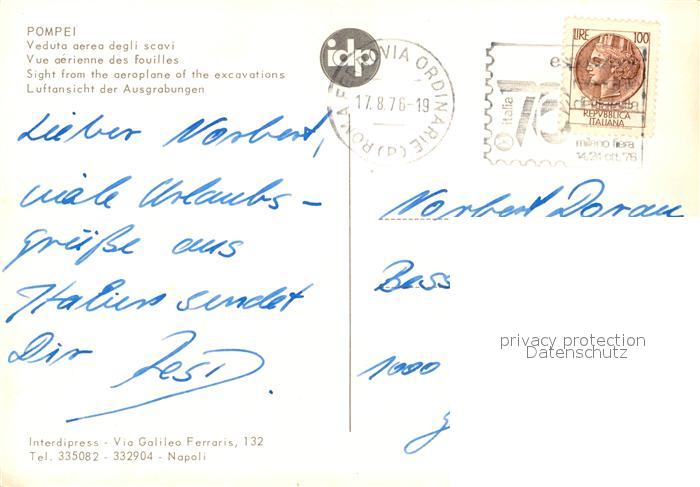 POMPEI
Veduta aerea degli scavi
Vue aérienne des fouilles
Sight from the aeroplane of the excavations
Luftansicht der Ausgrabungen
idp
ORDINARIE (P) ROMA
17.8.76-19
LIRE 100
REPVBBLICA
ITALIANA
italia 76
milano fiera
14/24 ott. '76
Lieber Norbert,
viele Urlaubs-
grüße aus
Italien sendet
Dir
Norbert
Bess
1000
privacy protection
Datenschutz
Interdipress - Via Galileo Ferraris, 132
Tel. 335082 - 332904 - Napoli